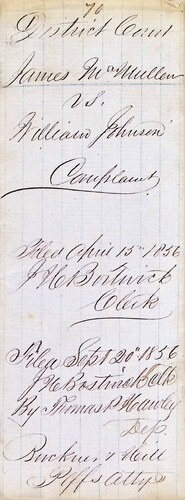 70
District Court
James McMullen
vs.
William Johnson
Complaint
Filed April 15th 1856
J H Bostwick
Clerk
Filed Sept 20th 1856
J H Bostwick Clk
By Thomas P Hawley
Dep
Buckner & Hill
Plffs Attys